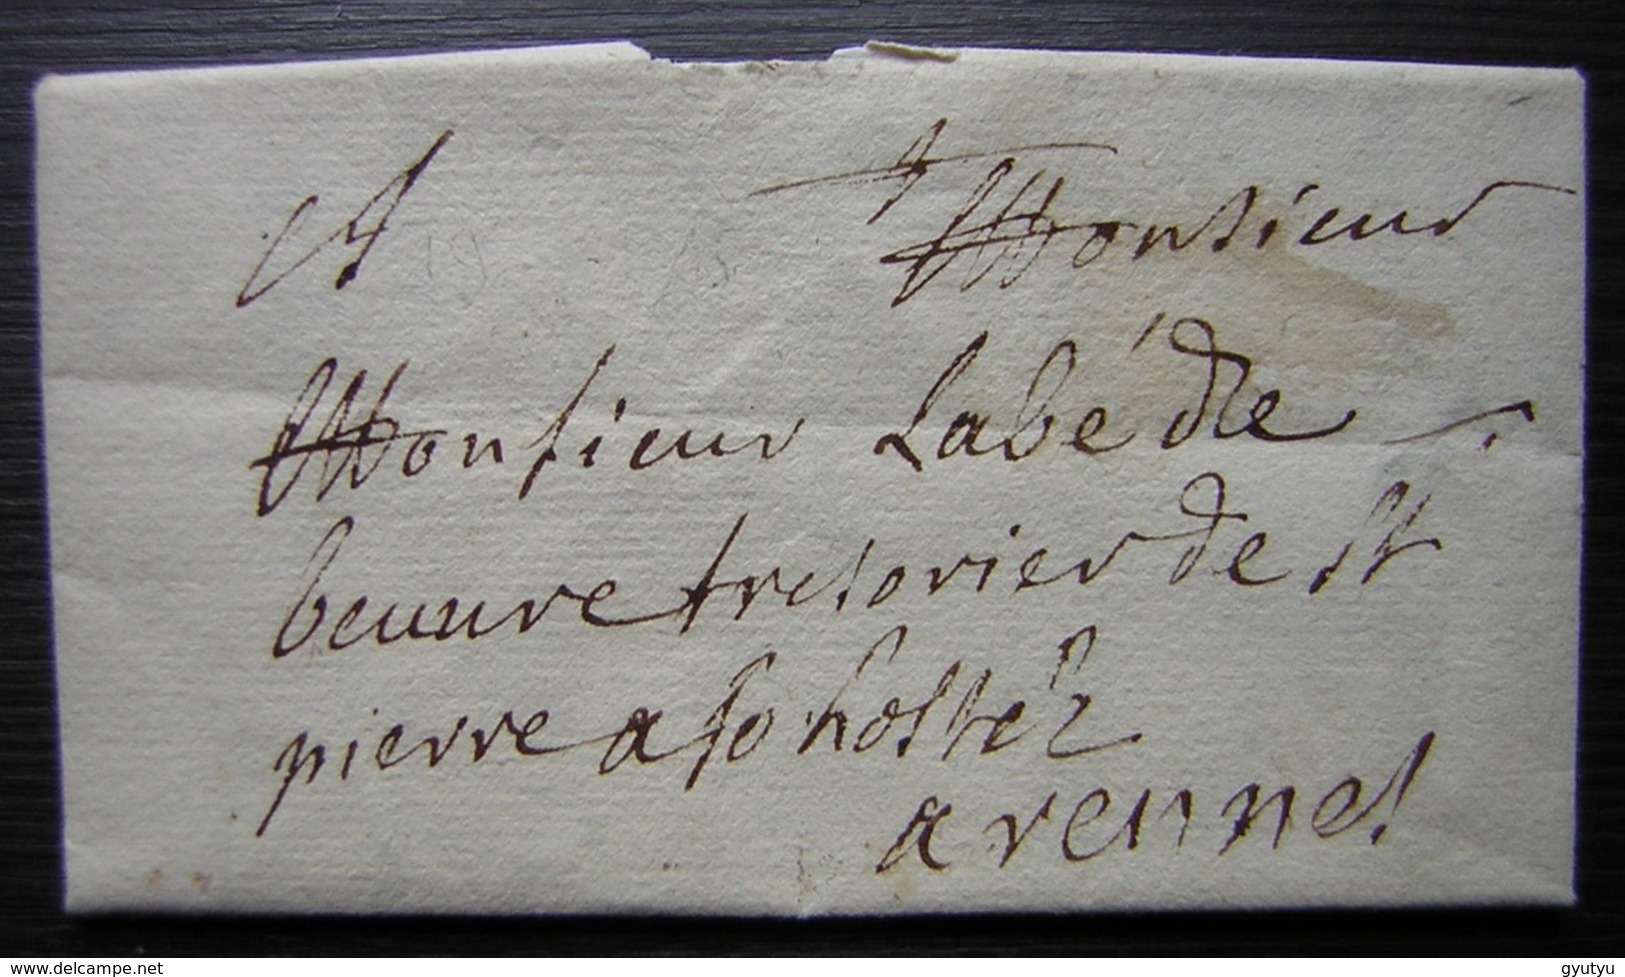 A Monsieur
Monsieur Labé de
beuvre tresorier de St
pierre a so hostel
a rennes
www.delcampe.net
gyutyu